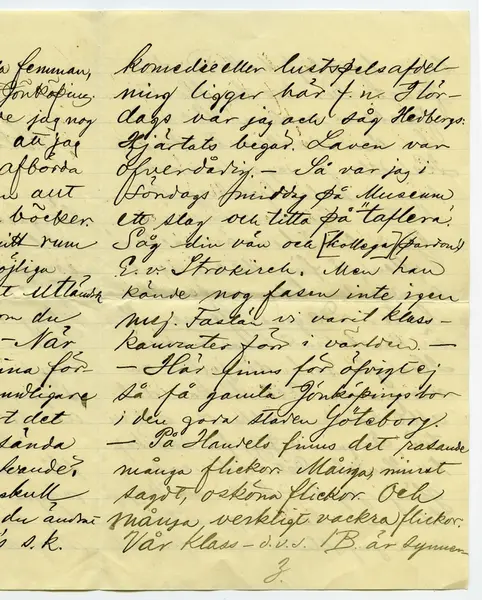 a femman,
Jönköping
e jag nog
att jag
afbörda
n aut
böcker.
itt rum
öjliga
t Utländsk
om du
– När
ina för-
undligare
t det
sända
skull
du ändrat
s s.k.
komedie eller lustspelsafdel
ning ligger här f.n. Thör-
dags var jag och såg Hedbergs:
Hjärtats begär. Laven var
öfverdådig. – Så var jag i
Söndags middag på Museum
ett slag och titta på "taflera".
Såg din vän och [kollega (pardon!)
E. v. Strokirch. Men han
kände nog fasen inte igen
mej. Fastän vi varit klass-
kamrater förr i världen. –
– Här finns för öfvigt ej
så få gamla Jönköpingsbor
i den goda staden Göteborg.
– På Handels finns det rasande
många flickor. Många, minst
sagdt, osköna flickor. Och
många, verkligt vackra flickor.
Vår klass – d.v.s. 1B. är synner
3.